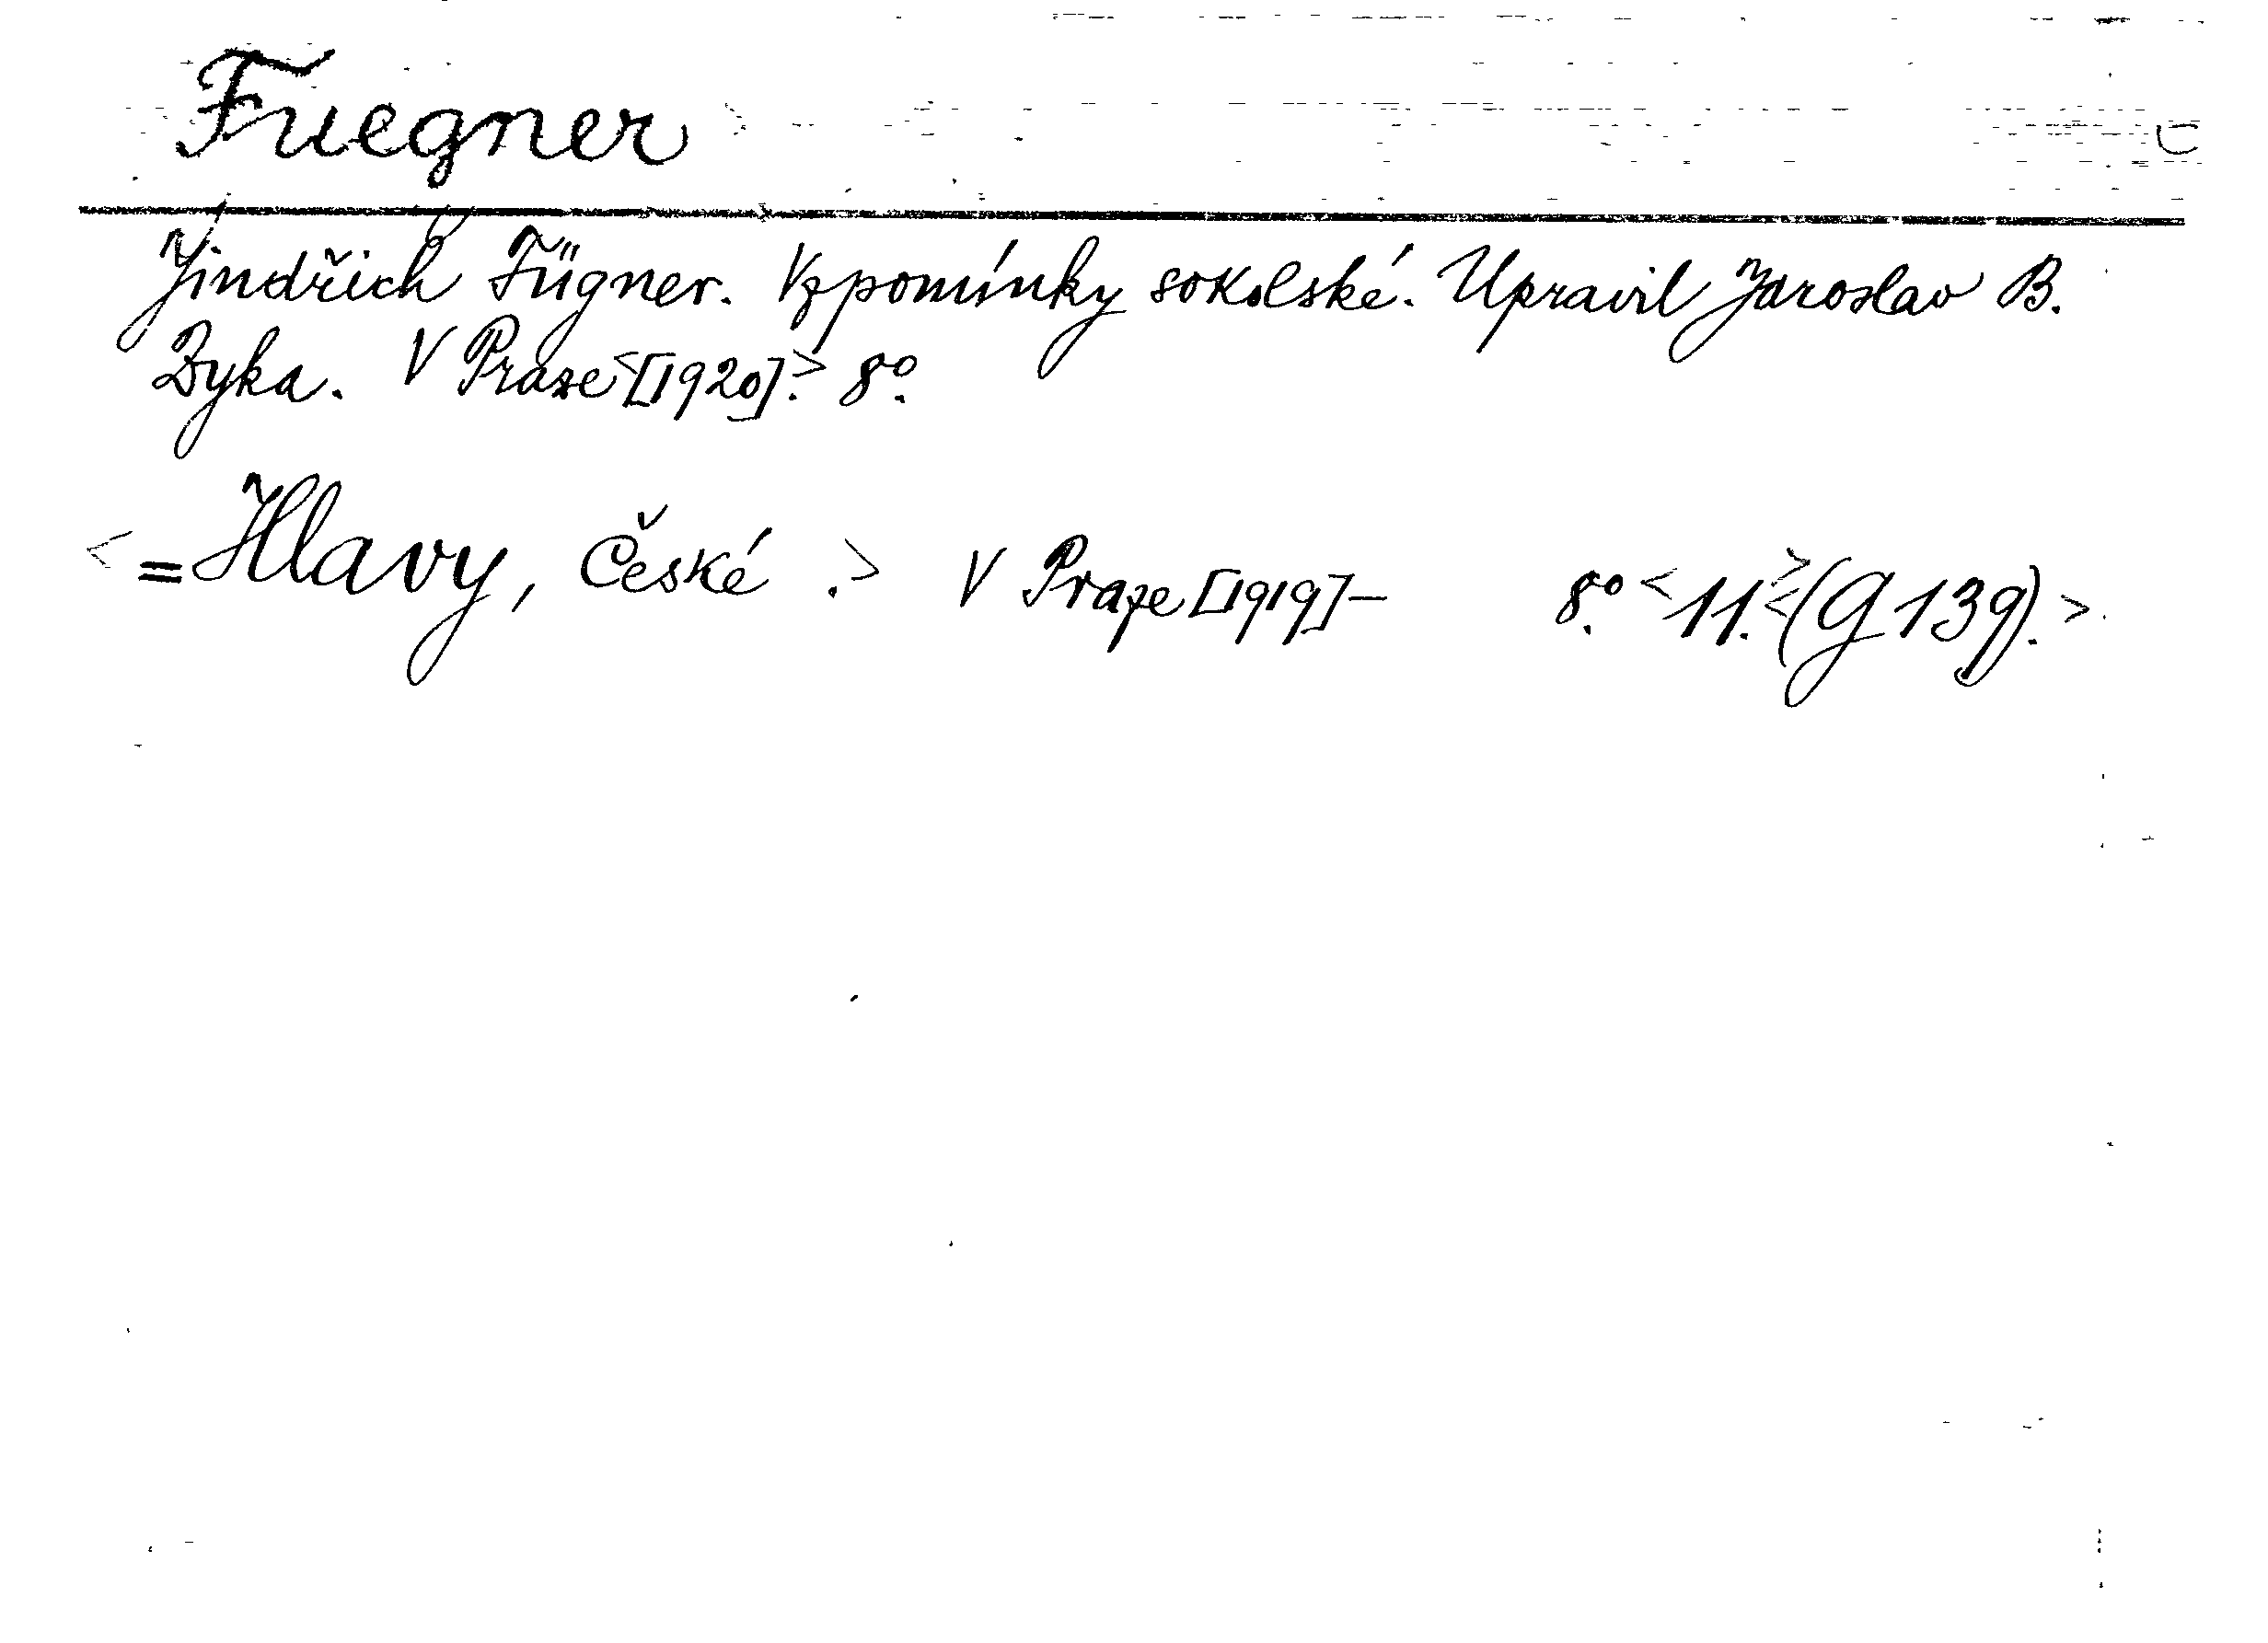 Fuegner
Jindřich Fügner. Vzpomínky sokolské. Upravil Jaroslav B.
Dyka. V Praze <[1920].> 8°.
<=Hlavy, České .> V Praze [1919]— 8°. <11.> <(G 139).>